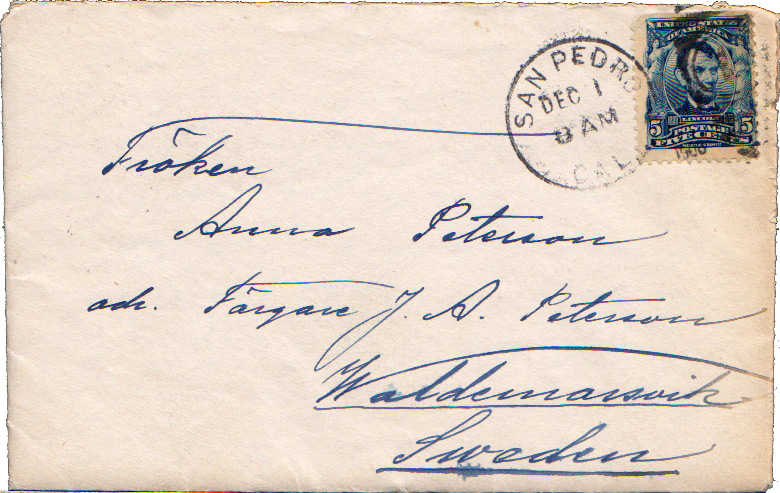 SAN PEDRO
DEC 1
8 AM
CAL.
UNITED STATES
OF AMERICA
LINCOLN
5 POSTAGE 5
FIVE CENTS
SERIES 1902
Fröken
Anna Peterson
adr. Färgare J. A. Peterson
Waldemarsvik
Sweden